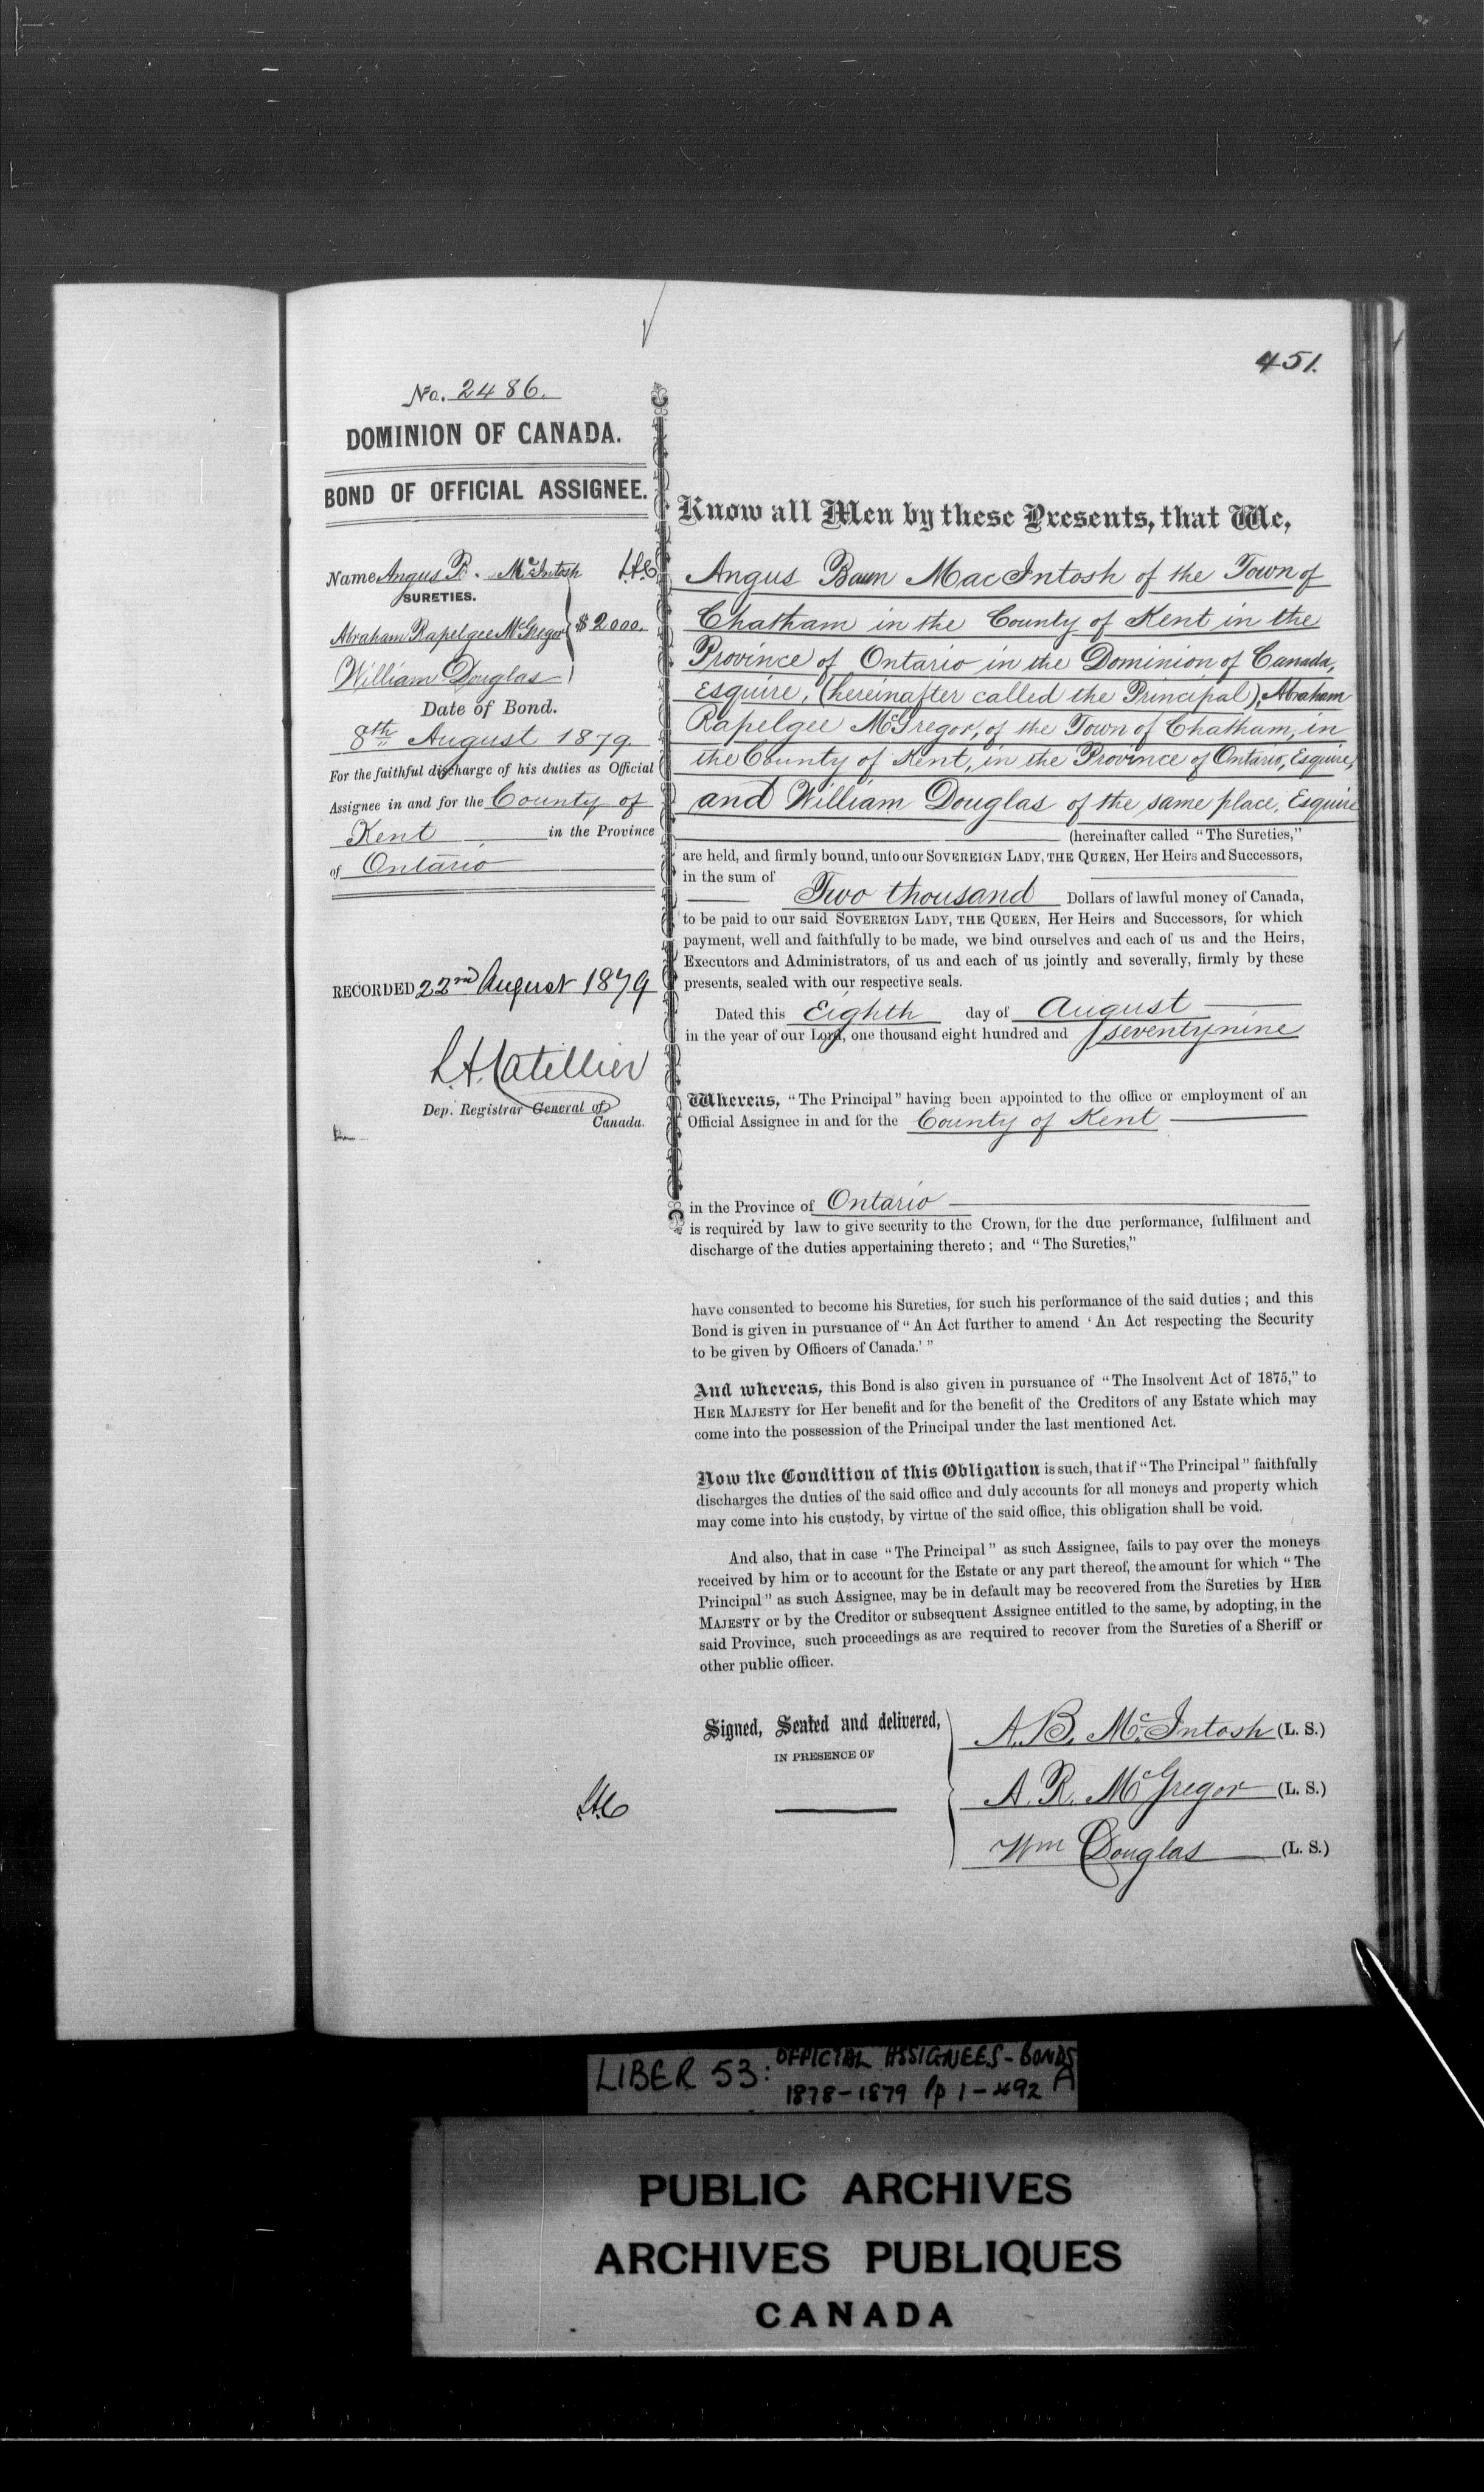 451.
No. 2486.
DOMINION OF CANADA.
BOND OF OFFICIAL ASSIGNEE.
Name Angus B. McIntosh
SURETIES.
Abraham Rapelgee McGregor } $2000.
William Douglas
Date of Bond.
8th August 1879.
For the faithful discharge of his duties as Official
Assignee in and for the County of
Kent in the Province
of Ontario
RECORDED 22nd August 1879
L.A. Catellier
Dep. Registrar General of
Canada.
Know all Men by these Presents, that We,
Angus Baun MacIntosh of the Town of
Chatham in the County of Kent in the
Province of Ontario in the Dominion of Canada,
Esquire, (hereinafter called the Principal), Abraham
Rapelgee McGregor, of the Town of Chatham, in
the County of Kent, in the Province of Ontario, Esquire,
and William Douglas of the same place, Esquire
(hereinafter called "The Sureties,"
are held, and firmly bound, unto our SOVEREIGN LADY, THE QUEEN, Her Heirs and Successors,
in the sum of
Two thousand Dollars of lawful money of Canada,
to be paid to our said SOVEREIGN LADY, THE QUEEN, Her Heirs and Successors, for which
payment, well and faithfully to be made, we bind ourselves and each of us and the Heirs,
Executors and Administrators, of us and each of us jointly and severally, firmly by these
presents, sealed with our respective seals.
Dated this Eighth day of August
in the year of our Lord, one thousand eight hundred and seventy nine
Whereas, "The Principal" having been appointed to the office or employment of an
Official Assignee in and for the County of Kent
in the Province of Ontario
is required by law to give security to the Crown, for the due performance, fulfilment and
discharge of the duties appertaining thereto; and "The Sureties,"
have consented to become his Sureties, for such his performance of the said duties; and this
Bond is given in pursuance of "An Act further to amend 'An Act respecting the Security
to be given by Officers of Canada.'"
And whereas, this Bond is also given in pursuance of "The Insolvent Act of 1875," to
HER MAJESTY for Her benefit and for the benefit of the Creditors of any Estate which may
come into the possession of the Principal under the last mentioned Act.
Now the Condition of this Obligation is such, that if "The Principal" faithfully
discharges the duties of the said office and duly accounts for all moneys and property which
may come into his custody, by virtue of the said office, this obligation shall be void.
And also, that in case "The Principal" as such Assignee, fails to pay over the moneys
received by him or to account for the Estate or any part thereof, the amount for which "The
Principal" as such Assignee, may be in default may be recovered from the Sureties by HER
MAJESTY or by the Creditor or subsequent Assignee entitled to the same, by adopting, in the
said Province, such proceedings as are required to recover from the Sureties of a Sheriff or
other public officer.
Signed, Sealed and delivered,
IN PRESENCE OF
A.B. McIntosh (L. S.)
A. R. McGregor (L. S.)
Wm Douglas (L. S.)
LIBER 53: OFFICIAL ASSIGNEES - BONDS
1878-1879 Pp 1-492 A
PUBLIC ARCHIVES
ARCHIVES PUBLIQUES
CANADA